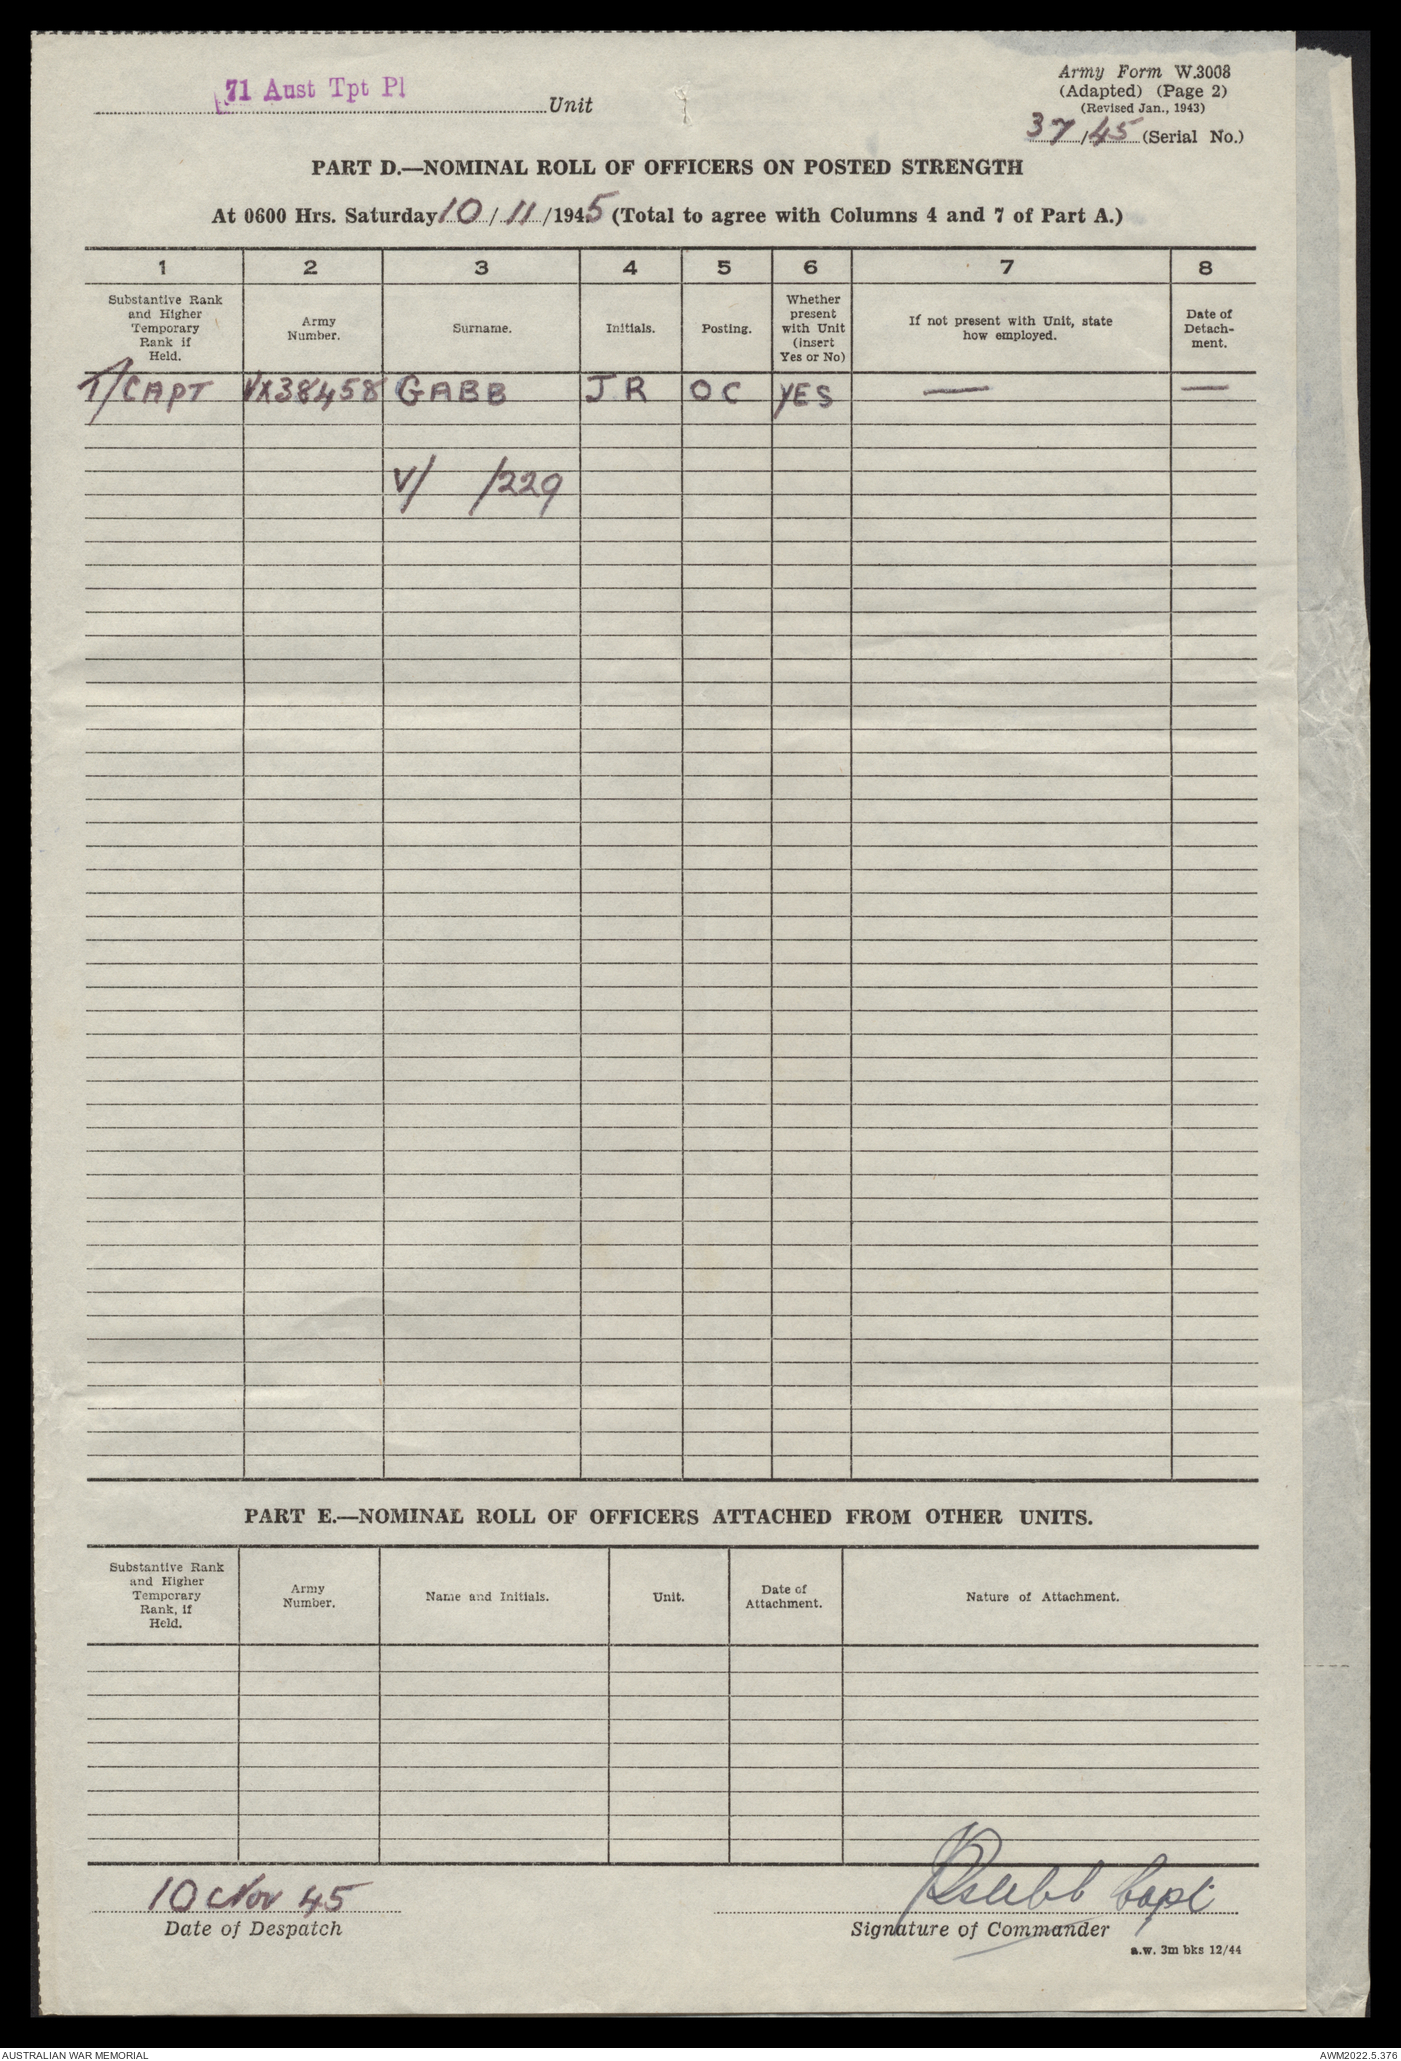 71 Aust Tpt Pl Unit
Army Form W.3008
(Adapted) (Page 2)
(Revised Jan., 1943)
37/45 (Serial No.)
PART D.—NOMINAL ROLL OF OFFICERS ON POSTED STRENGTH
At 0600 Hrs. Saturday 10/11/1945 (Total to agree with Columns 4 and 7 of Part A.)
1 2 3 4 5 6 7 8
Substantive Rank and Higher Temporary Rank if Held. Army Number. Surname. Initials. Posting. Whether present with Unit (insert Yes or No) If not present with Unit, state how employed. Date of Detachment.
T/CAPT VX38458 GABB J R OC YES — —
V/ /229
PART E.—NOMINAL ROLL OF OFFICERS ATTACHED FROM OTHER UNITS.
Substantive Rank and Higher Temporary Rank, if Held. Army Number. Name and Initials. Unit. Date of Attachment. Nature of Attachment.
10 Nov 45 Capt
Date of Despatch Signature of Commander
a.w. 3m bks 12/44
AUSTRALIAN WAR MEMORIAL AWM2022.5.376